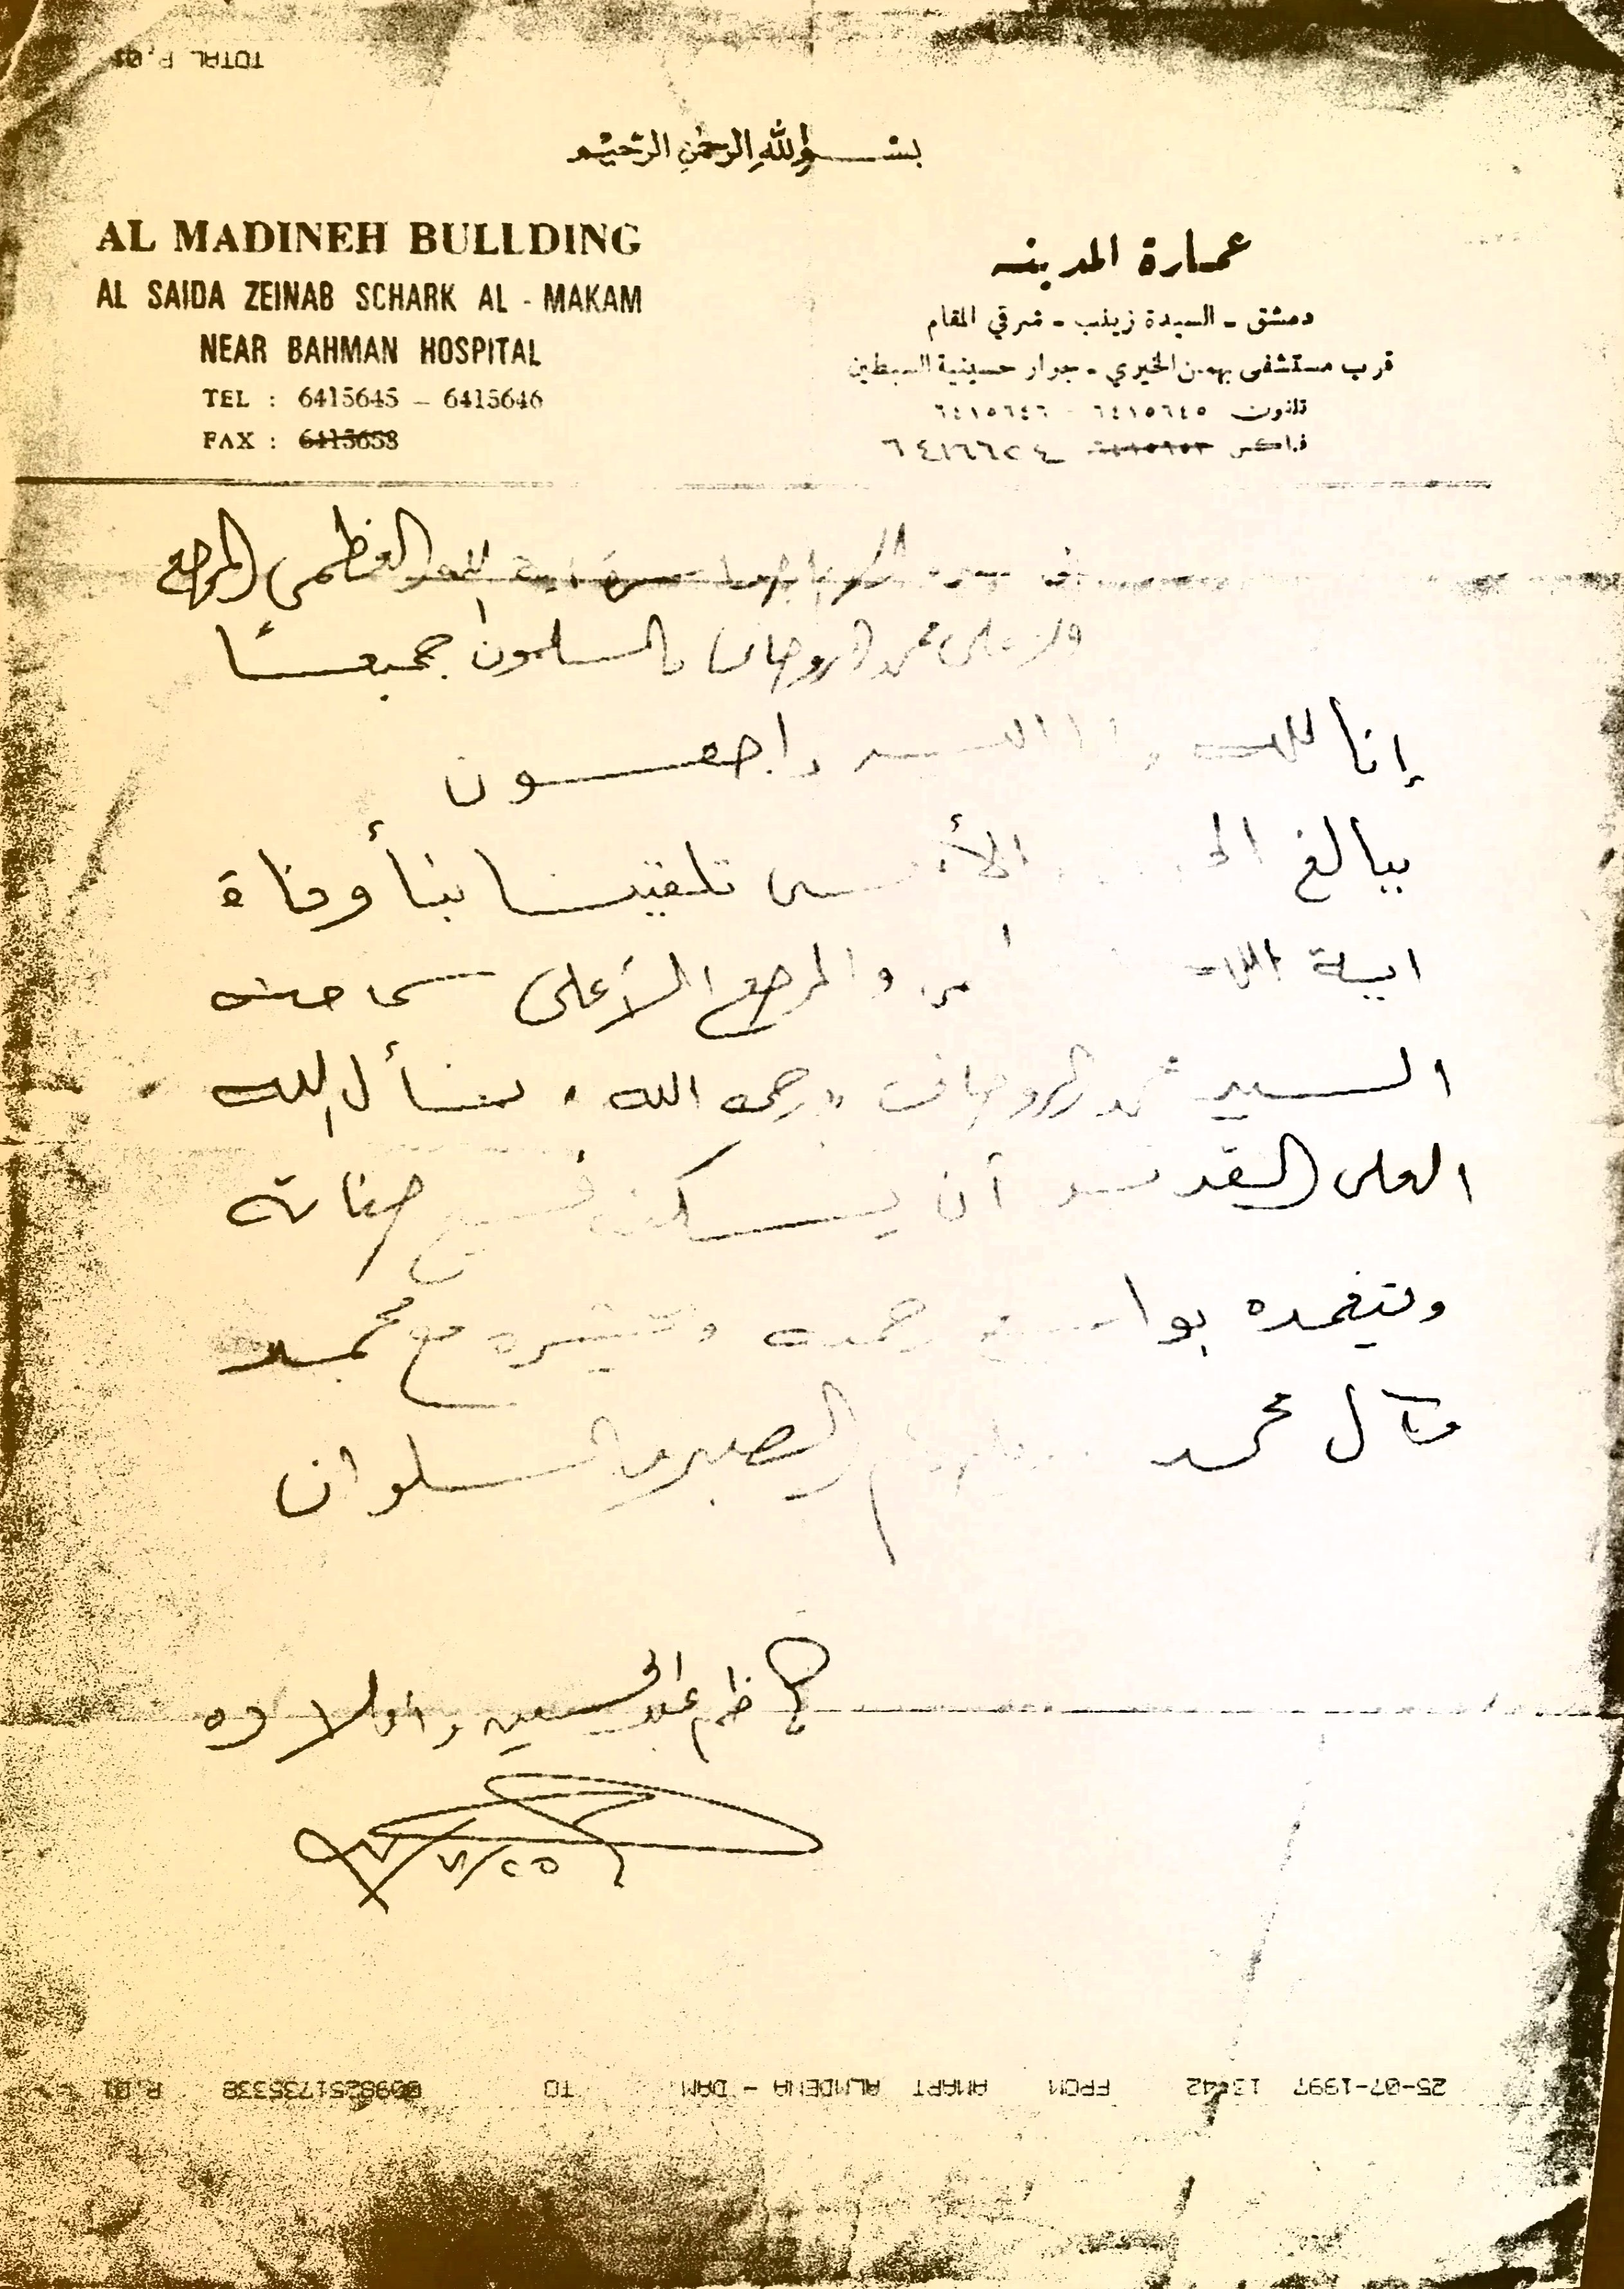 TOTAL P.01
بسم الله الرحمن الرحيم
AL MADINEH BULLDING
AL SAIDA ZEINAB SCHARK AL - MAKAM
NEAR BAHMAN HOSPITAL
TEL : 6415645 – 6415646
FAX : 6415658
عمارة المدينه
دمشق - السيدة زينب - شرقي المقام
قرب مستشفى بهمن الخيري - جوار حسينية السبطين
تلفون ٦٤١٥٦٤٥ - ٦٤١٥٦٤٦
فاكس ٦٤١٦٦٢٤
العظمى المرجع
محمد الروحاني والمسلمون جميعاً
إنا لله وانا اليه راجعون
ببالغ الأسى تلقينا نبأ وفاة
اية الله والمرجع الأعلى سماحة
السيد محمد الروحاني «رحمه الله» نسأل الله
العلي القدير أن يسكنه فسيح جناته
ويتغمده بواسع رحمته ويحشره مع محمد
وآل محمد الصبر والسلوان
كاظم عبد الحسين واولاده
٢٥/٧/٩٧
25-07-1997 13:42 FROM AMART ALMDENA - DAM TO 0098251735338 P.01